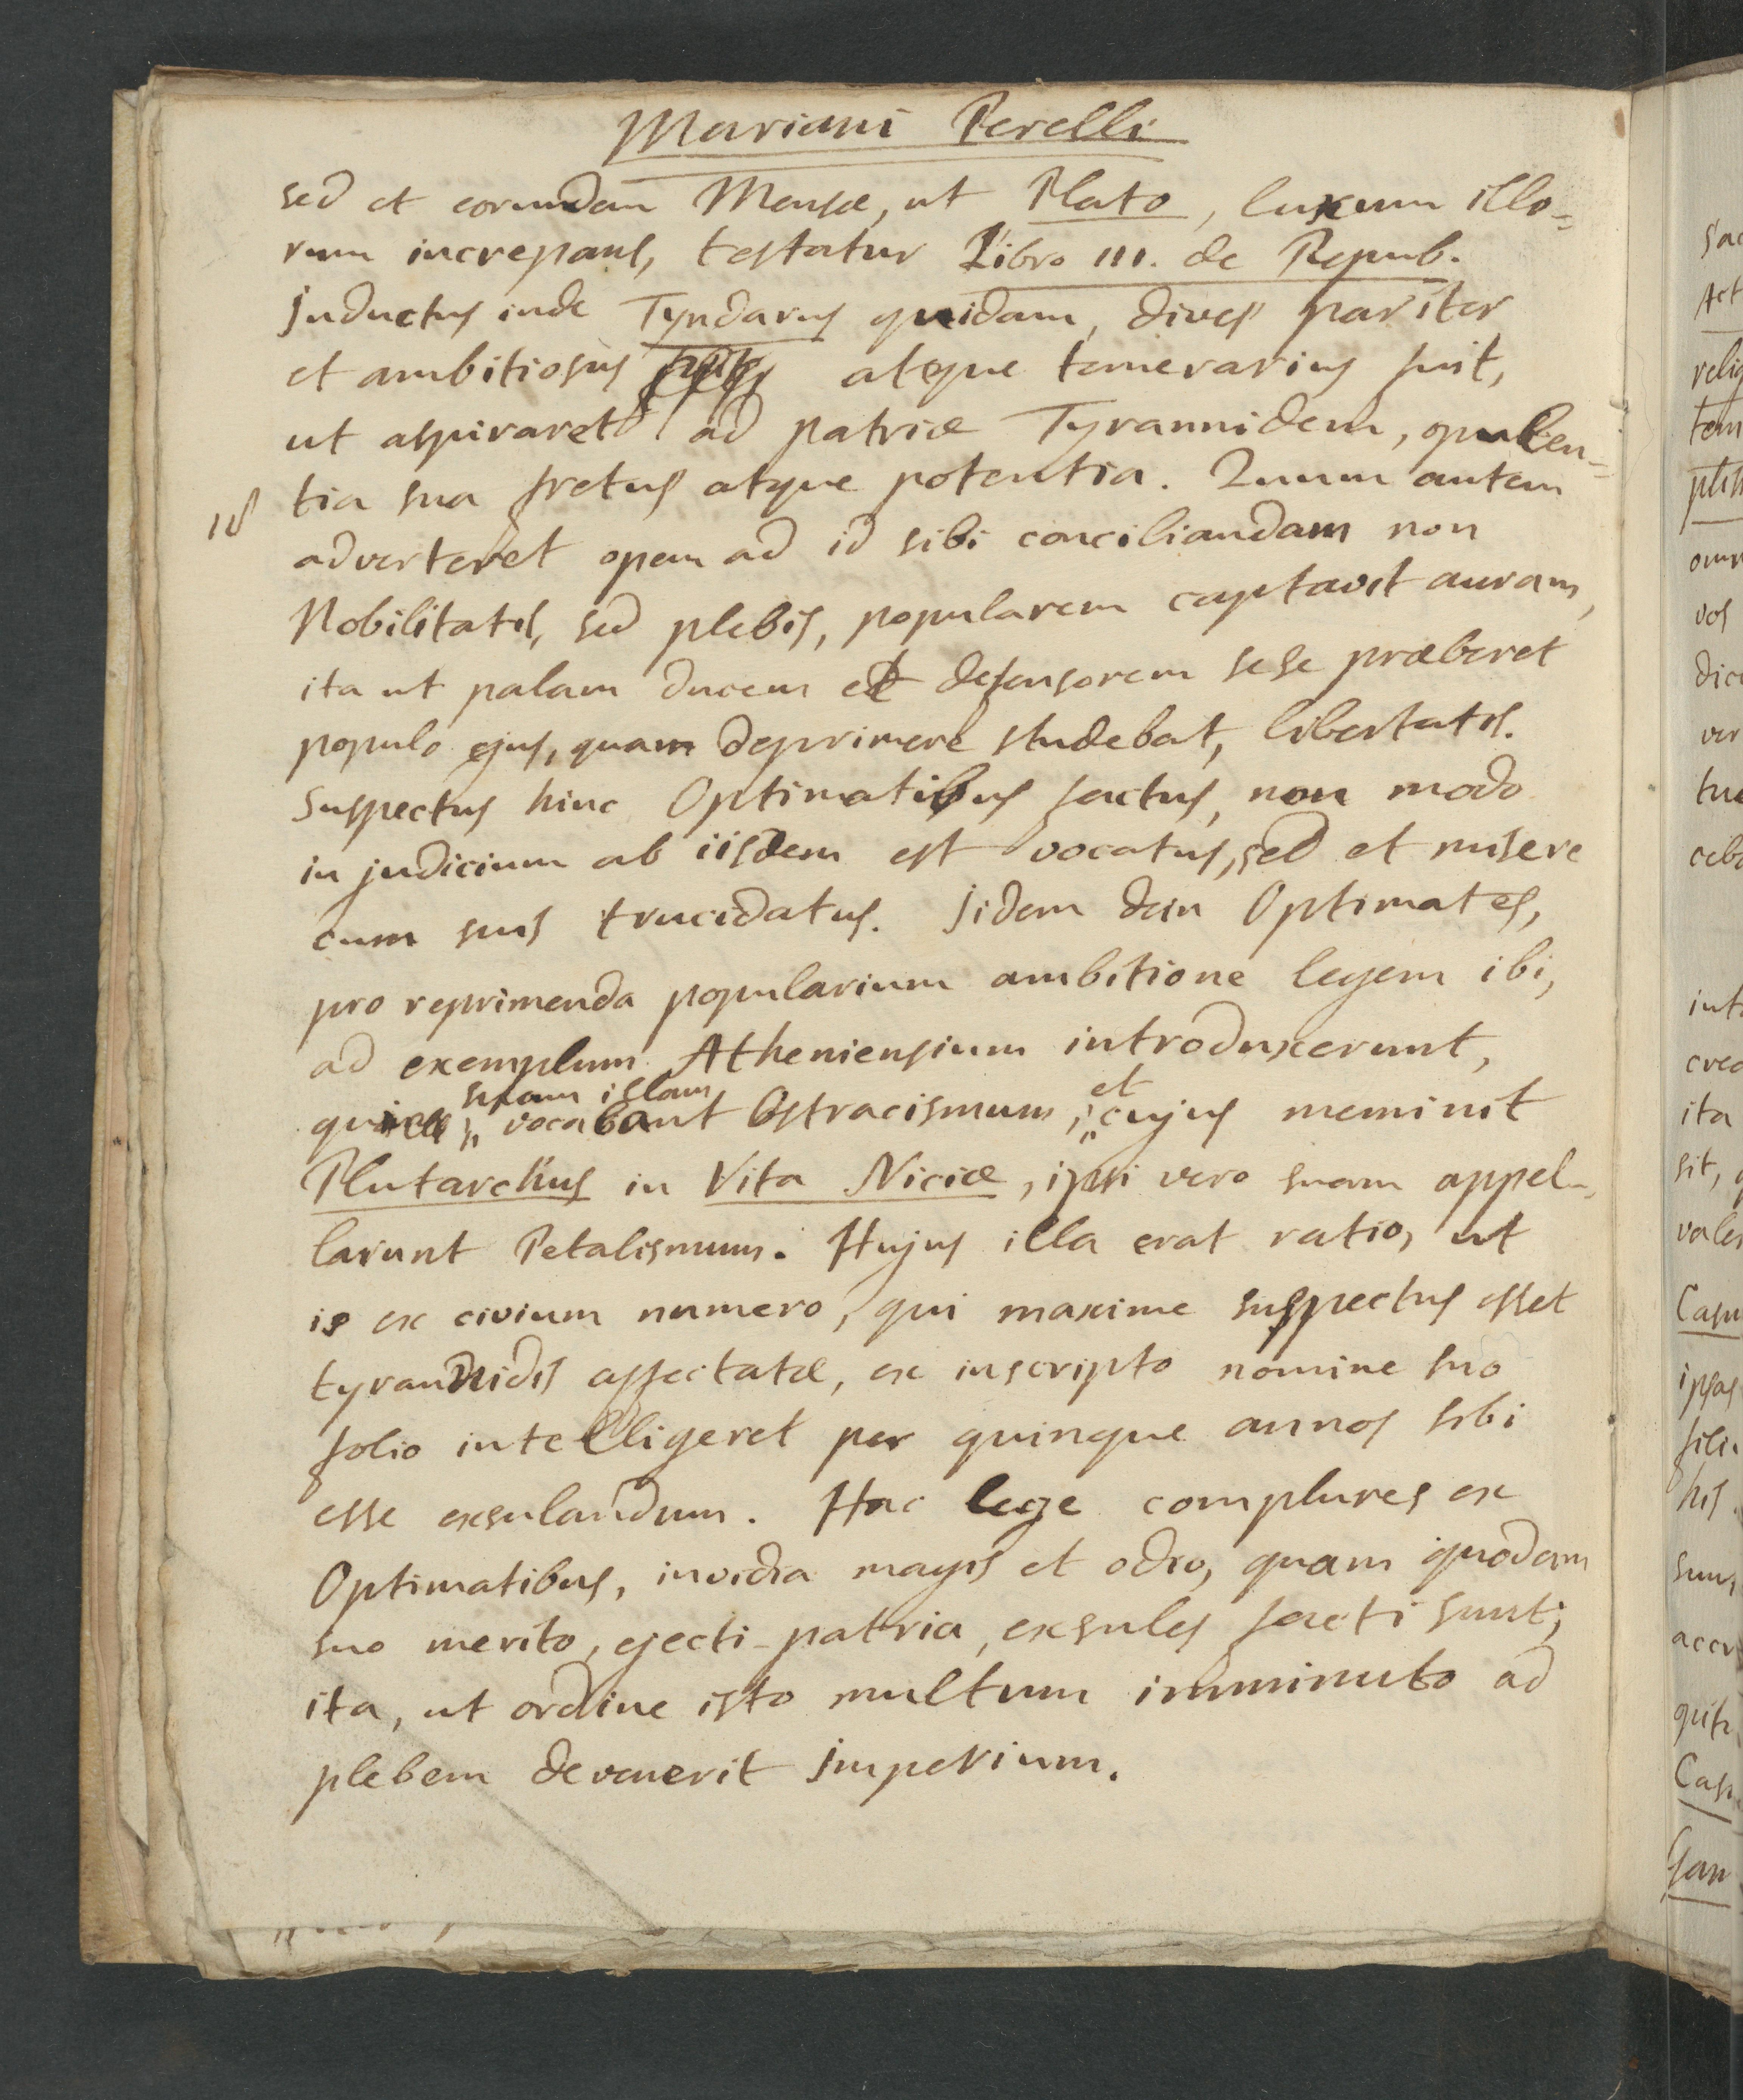 Mariani Perelli
sed et eorundem Mensæ, ut Plato, luxum illo=
rum increpans, testatur Libro III. de Repub.
Inductus inde Tyndarus quidam, dives pariter
et ambitiosus atque temerarius fuit,
ut aspiraret ad patriæ Tyrannidem, opulen=
tia sua fretus atque potentia. Quum autem
adverteret opem ad id sibi conciliandam non
Nobilitatis, sed plebis, popularem captavit auram,
ita ut palam ducem et defensorem sese præberet
populo ejus, quam deprimere studebat, libertatis.
Suspectus hinc Optimatibus factus, non modo
in judicium ab iisdem est vocatus, sed et misere
cum suis trucidatus. Iidem dein Optimates,
pro reprimenda popularium ambitione legem ibi,
ad exemplum Atheniensium introduxerunt,
suam illam et
vocabant Ostracismum, cujus meminit
Plutarchus in Vita Niciæ, ipsi vero suam appel=
larunt Petalismum. Hujus illa erat ratio, ut
is ex civium numero, qui maxime suspectus esset
tyrannidis affectatæ, ex inscripto nomine suo
folio intelligeret per quinque annos sibi
esse exsulandum. Hac lege complures ex
Optimatibus, invidia magis et odio, quam quodam
suo merito, ejecti patria, exsules facti sunt;
ita, ut ordine isto multum imminuto ad
plebem devenerit imperium.